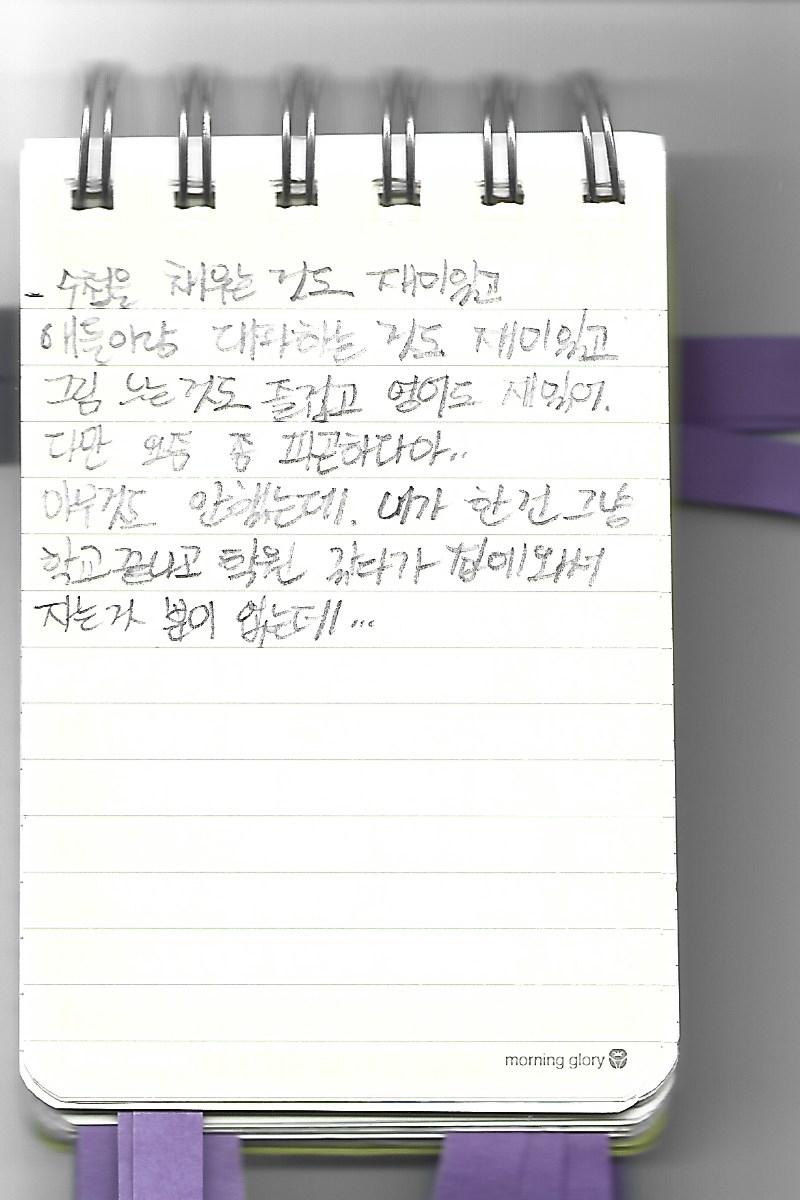 - 수첩을 채우는 것도 재미있고
애들이랑 대화하는 것도 재미있고
그림 는 것도 즐겁고 영어도 재밌어.
다만 요즘 좀 피곤하다아..
아무것도 안했는데. 내가 한 건 그냥
학교 끝나고 학원 갔다가 집에 와서
자는거 밖이 없는데...
morning glory